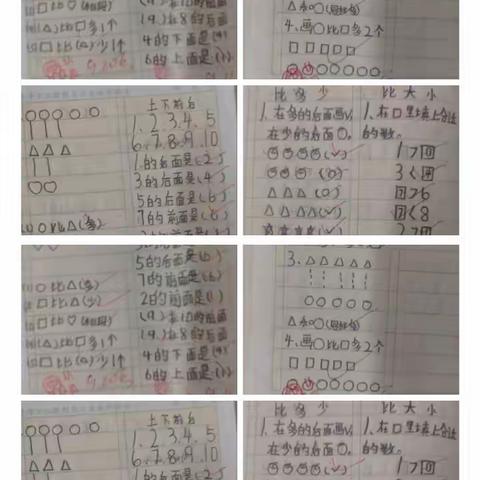 (2)□比♡(相同)
(3)□比△少1个
(9)在10的前面
(9)在8的后面
4的下面是(9)
6的上面是(1)
△和○(同样多)
4、画○比□多2个
□□□□□
○○○○○○○
上下前后
1、2、3、4、5
6、7、8、9、10
1的后面是(2)
3的后面是(4)
5的后面是(6)
7的前面是(6)
○比△(多)
比多少
1、在多的后面画√,
在少的后面○。
(√)
(○)
△△△(○)
△△△△(√)
比大小
1、在□里填上合适
的数。
1>0
3<4
7>6
7<8
2>0
○比△(多)
□比△(少)
□比♡(相同)
□比△少1个
5的后面是(6)
7的前面是(6)
2的前面是(1)
(9)在10的前面
(9)在8的后面
4的下面是(9)
6的上面是(1)
3、△△△△△
○○○○○
△和○(同样多)
4、画○比□多2个
□□□□□
○○○○○○○
上下前后
1、2、3、4、5
6、7、8、9、10
1的后面是(2)
比多少
1、在多的后面画√,
在少的后面○。
(√)
比大小
1、在□里填上合适
的数。
1>0